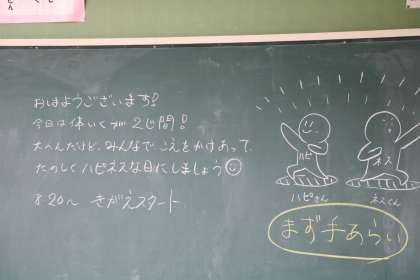 おはようございます!
今日は体いくが2じ間!
大へんだけど、みんなでこえをかけあって、
たのしくハピネスな日にしましょう
8:20〜 きがえスタート
ハピ
ネス
ハピさん
ネスくん
まず手あらい